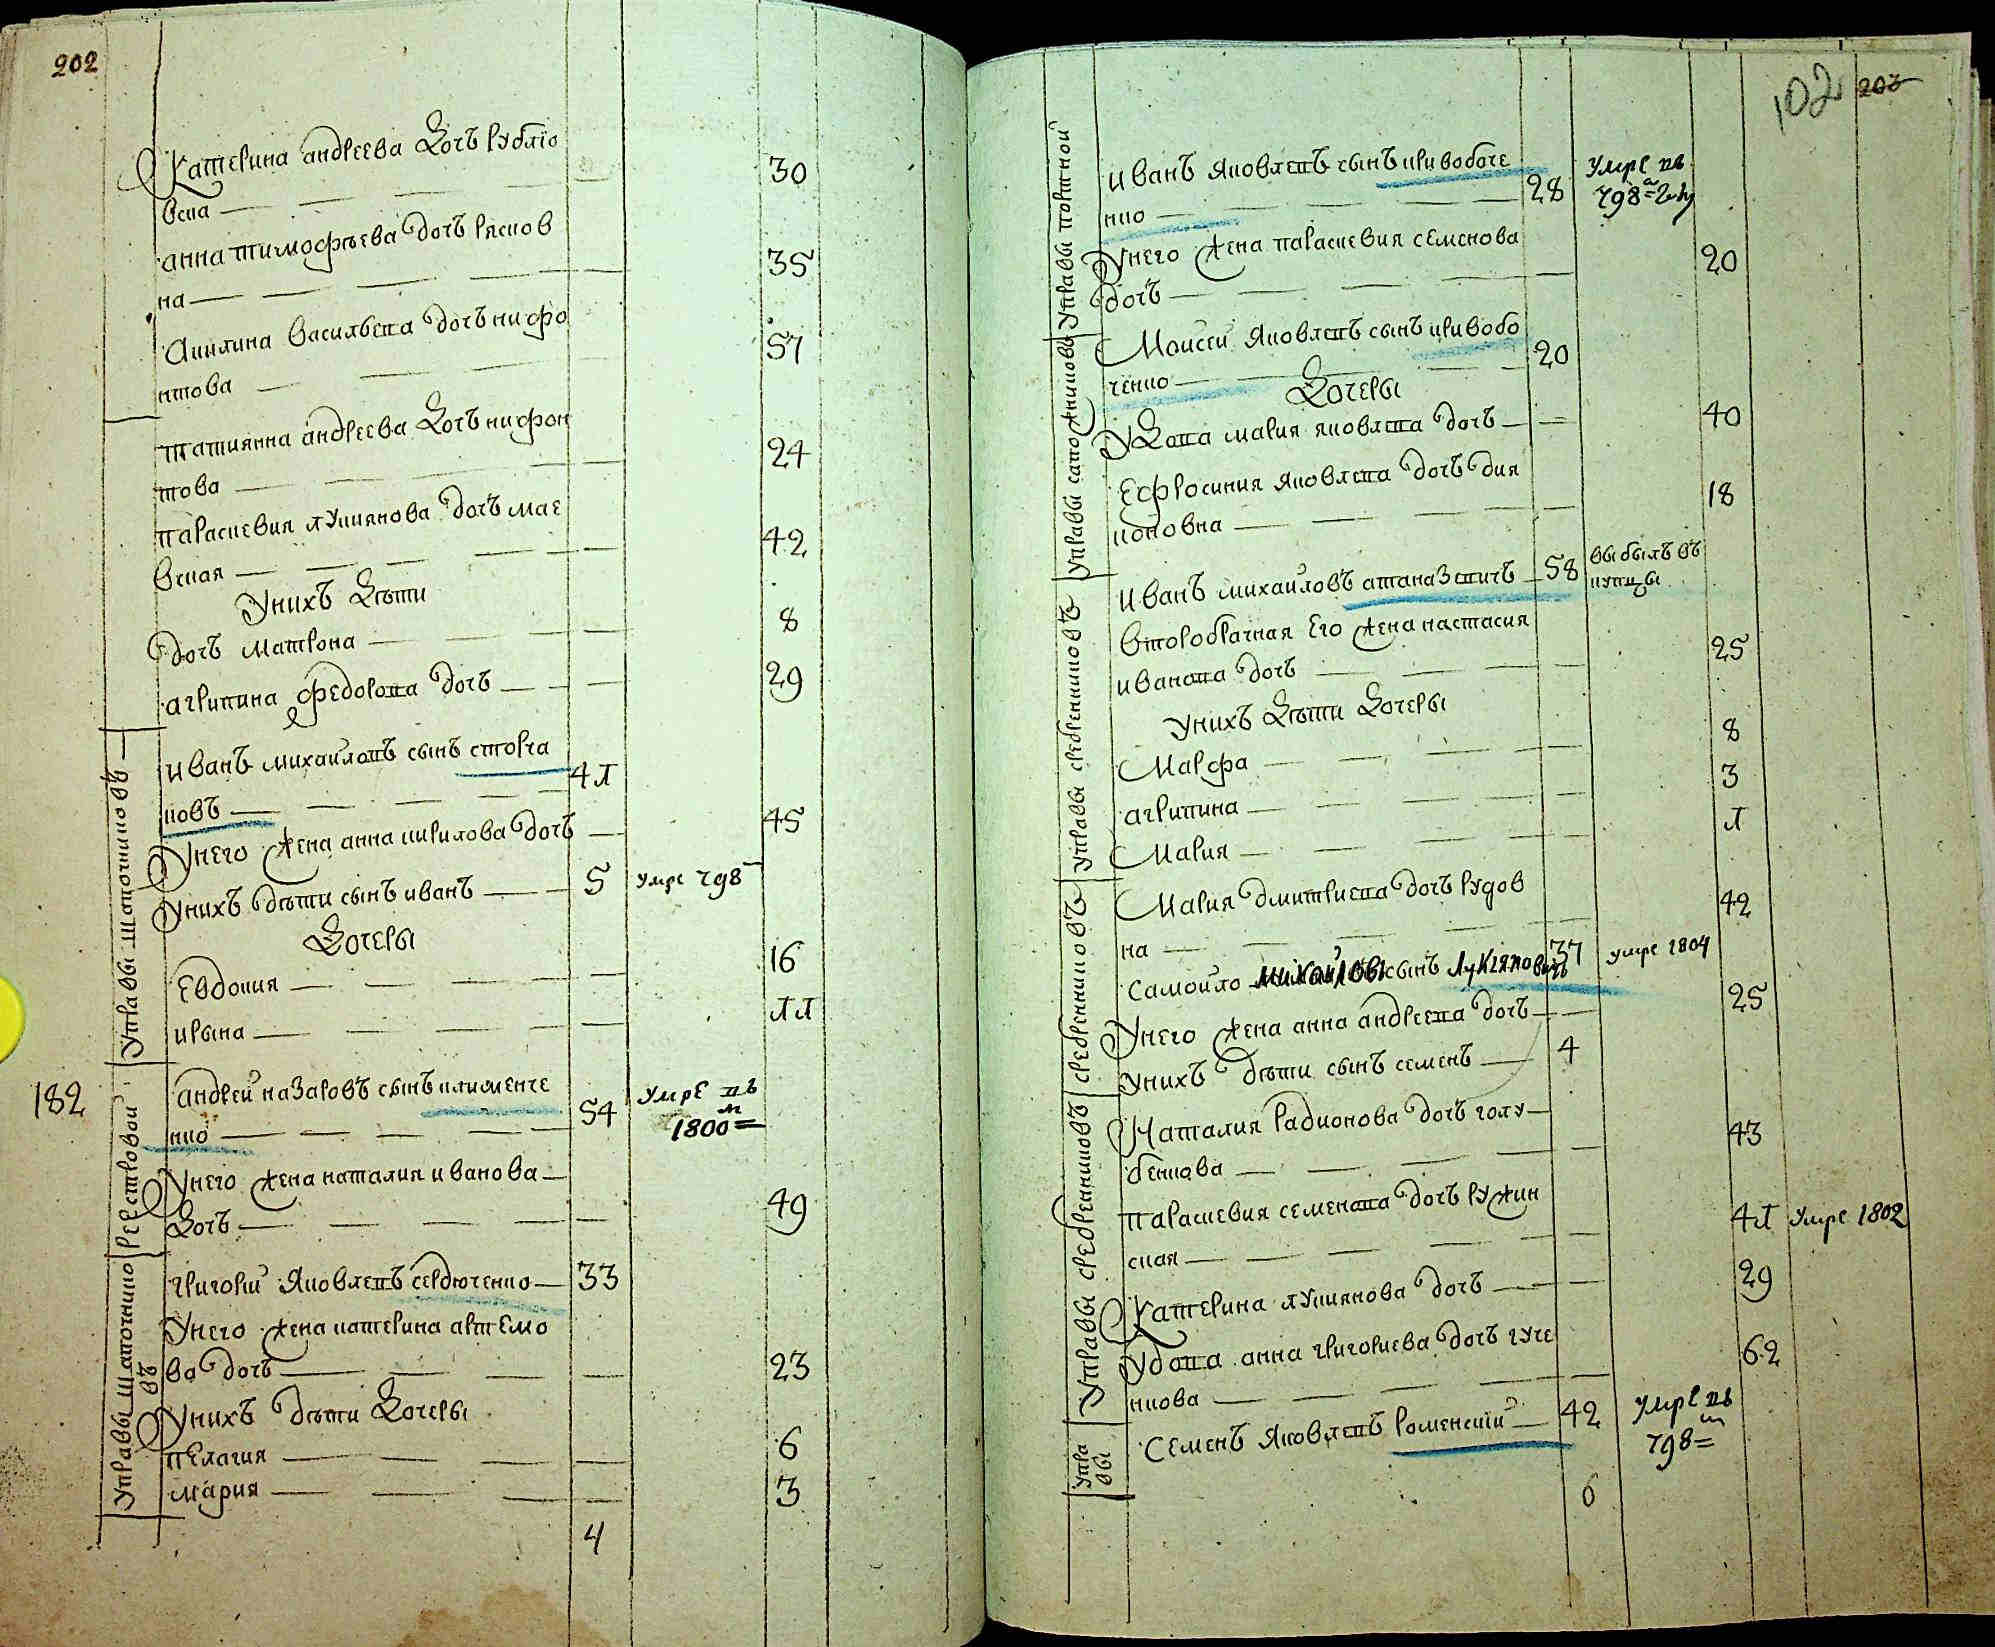 202
Катерина андреева дочь рублio
вска 30
анна тимофѣева дочь ряснов
на 35
Акилина васильева дочь нифо
нтова 57
татиянна андреева дочь нифон
това 24
параскевия лукиянова дочь мае
вская 42
У нихъ дѣти
дочь матрона 8
агрипина федорова дочь 29
Управы шапочниковъ
иванъ михаиловъ сынъ сторча
ковъ 41
У него жена анна кирилова дочь 45
У нихъ дѣти сынъ иванъ 5 умре 798
Дочеры
Евдокия 16
ирына 11
182
Реестровой
андрей назаровъ сынъ клименче
нко 54 Умре въ
1800м
У него жена наталия иванова
Дочь 49
Управы шапочнико
въ
григорий Яковлевъ сердюченко 33
У него жена катерина артемо
ва дочь 23
У нихъ дѣти Дочеры
пелагия 6
мария 3
4
102 203
Управы портной
иванъ Яковлевъ сынъ кривобоче
нко 28 Умре въ
798
У него жена параскевия семенова
дочь 20
Управы сапожникова
Моисей Яковлевъ сынъ кривобо
ченко 20
Дочеры
У Дова мария яковлева дочь 40
Ефросиния яковлева дочь дия
коновна 18
Управы сребренниковъ
иванъ михайловъ атаназевичъ 58 выбылъ въ
купцы
второбрачная его жена настасия
иванова дочь 25
У нихъ дѣти Дочеры
Марфа 8
агрипина 3
Мария 1
Управы сребренниковъ
Мария дмитриева дочь рудов
на 42
Самойло михайловъ сынъ Лукіяновичъ 37 умре 1804
У него жена анна андреева дочь 25
У нихъ дѣти сынъ семенъ 4
Управы сребренниковъ
Наталия радионова дочь голу
бенкова 43
параскевия семенова дочь ружин
ская 41 Умре 1802
Катерина лукиянова дочь 29
Удова анна григориева дочь гуче
нкова 62
Упра
вы
Семенъ Яковлевъ роменский 42 умре въ
798м
6